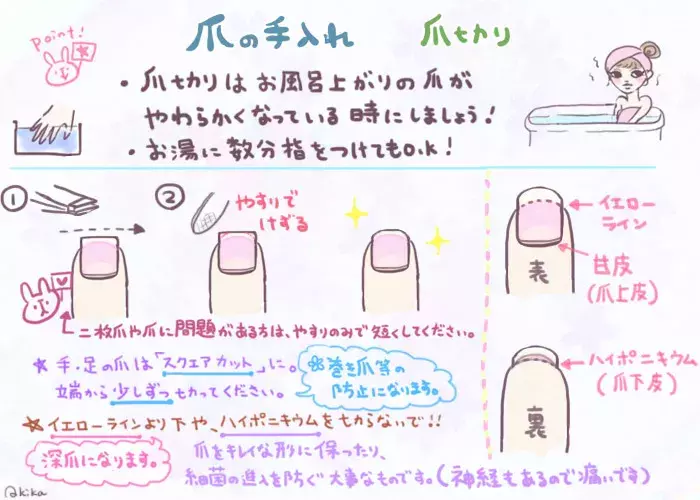 爪の手入れ 爪切り
point!
・爪切りはお風呂上がりの爪が
やわらかくなっている時にしましょう!
・お湯に数分指をつけてもo.k!
①
②
やすりで
けずる
二枚爪や爪に問題がある方は、やすりのみで短くしてください。
イエロー
ライン
甘皮
(爪上皮)
表
ハイポニキウム
(爪下皮)
裏
☆手・足の爪は「スクエアカット」に。
端から少しずつ切ってください。
巻き爪等の
防止になります。
☆イエローラインより下や、ハイポニキウムを切らないで!!
深爪になります。
爪をキレイな形に保ったり、
細菌の進入を防ぐ大事なものです。(神経もあるので痛いです)
@kika